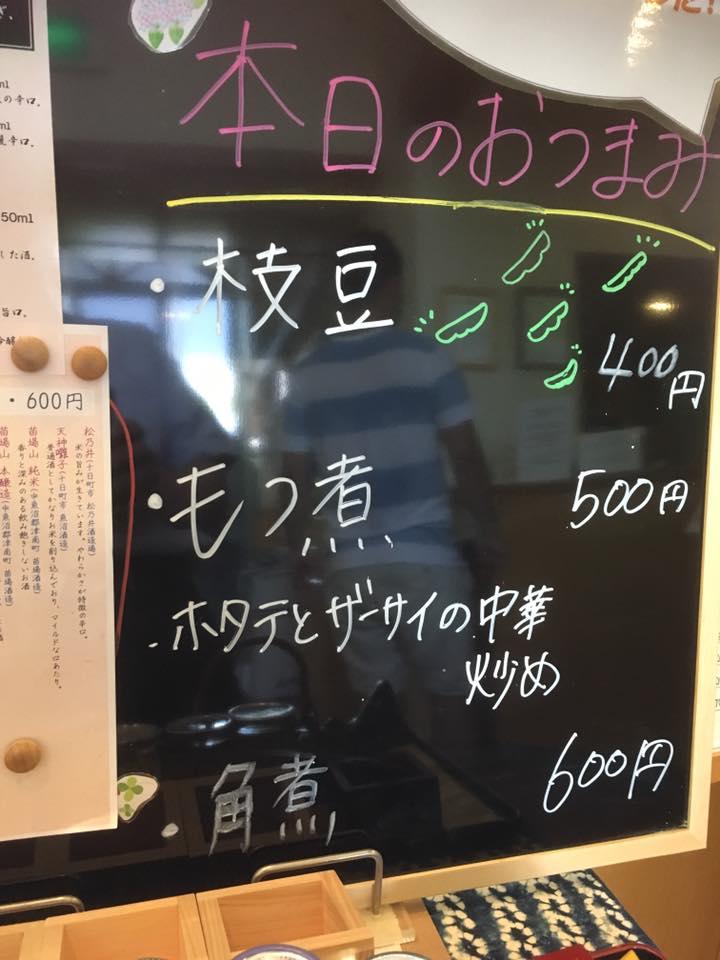 本日のおつまみ
・枝豆
400円
・もつ煮 500円
・ホタテとザーサイの中華
炒め
600円
・角煮
ml
の辛口。
ml
辛口。
50ml
した酒。
旨口。
・600円
松乃井(十日町市 松乃井酒造場)
米の旨みが生きています。やわらかさが特徴の辛口。
天神囃子(十日町市 魚沼酒造)
普通酒としてかなりお米を削り込んでおり、マイルドな口あたり。
苗場山 純米(中魚沼郡津南町 苗場酒造)
香りと深みのある飲み飽きしないお酒
苗場山 本醸造(中魚沼郡津南町 苗場酒造)